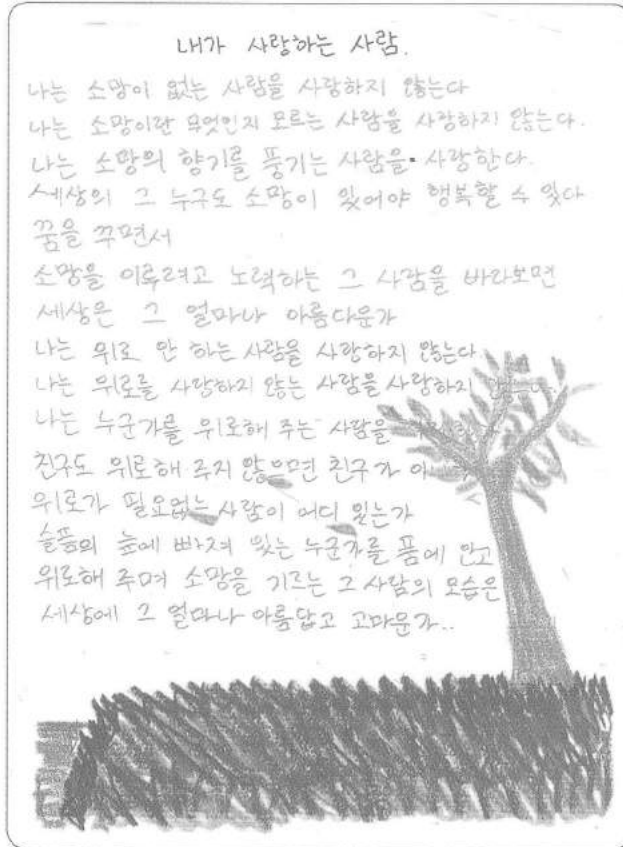 내가 사랑하는 사람.
나는 소망이 없는 사람을 사랑하지 않는다
나는 소망이란 무엇인지 모르는 사람을 사랑하지 않는다.
나는 소망의 향기를 풍기는 사람을 사랑한다.
세상의 그 누구도 소망이 있어야 행복할 수 있다
꿈을 꾸면서
소망을 이루려고 노력하는 그 사람을 바라보면
세상은 그 얼마나 아름다운가
나는 위로 안 하는 사람을 사랑하지 않는다
나는 위로를 사랑하지 않는 사람을 사랑하지
나는 누군가를 위로해 주는 사람을
친구도 위로해 주지 않으면 친구가
위로가 필요없는 사람이 어디 있는가
슬픔의 늪에 빠져 있는 누군가를 품에 안고
위로해 주며 소망을 기르는 그 사람의 모습은
세상에 그 얼마나 아름답고 고마운가..